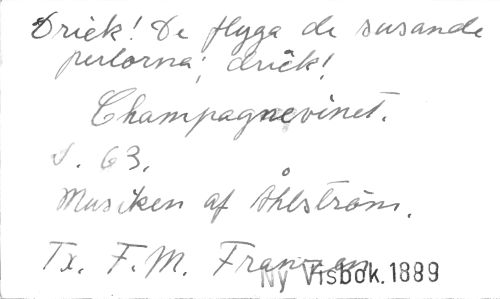 Drick! De flyga de susande
perlorna; drick!
Champagnevinet.
S. 63.
Musiken af Åhlström.
Tx. F. M. Franzén
Ny Visbok.1889